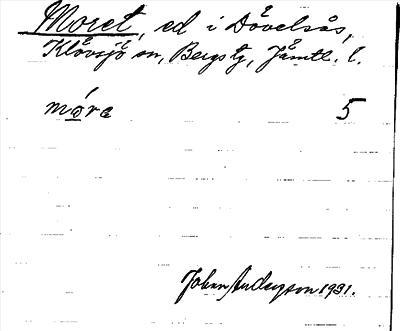 Moret, ed i Dövelsås,
Klövsjö sn, Bergs tg, Jämtl. l.
mo̲re 5
Johan Anderson 1931.